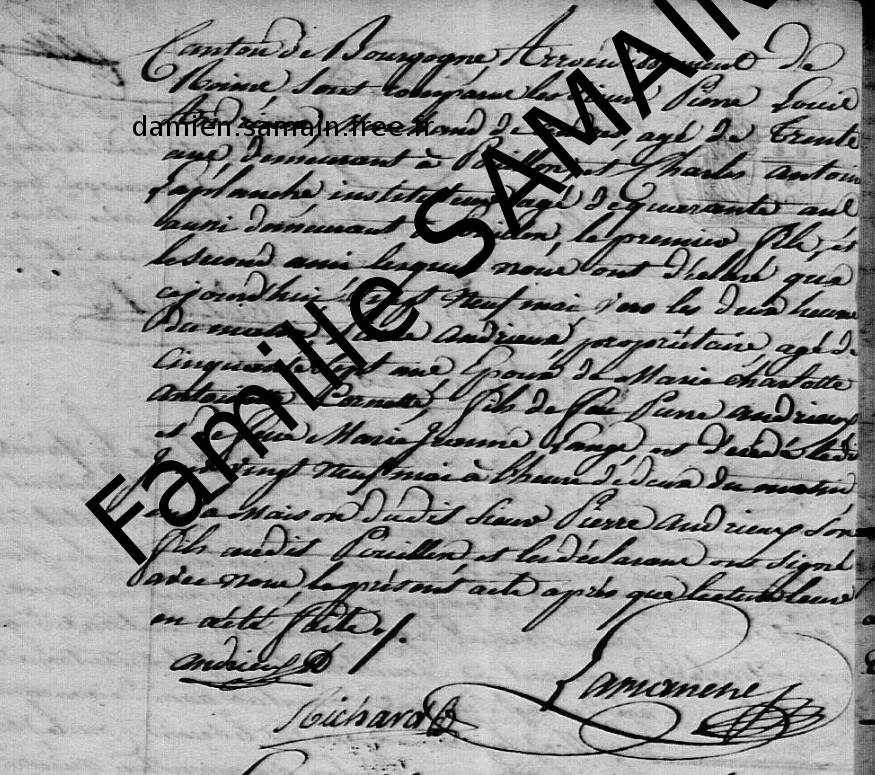 Canton de Bourgogne Arrondissement de
Reims sont comparus les sieurs Pierre Louis
damien.samain.free.fr
Andrieux, marchand de agé de trente
ans, demeurant à Pouillon, et Charles antoine
instituteur agé de quarante ans
aussi demeurant à Pouillon, le premier fils, et
le second ami lesquels nous ont déclaré que
cejourd'hui vingt neuf mai, vers les deux heures
du matin Andrieux, propriétaire, agé de
Cinquante sept ans Epoux de Marie Charlotte
antoinette fils de feu Pierre andrieux
et de feue Marie Jeanne Langé, est décédé ledit
Jour vingt neuf mai à l'heure de deux du matin
en la Maison dudit Sieur Pierre andrieux son
fils audit Pouillon et les déclarans ont signé
avec nous le présent acte après que lecture leur
en a été faite ./.
andrieux
Richard
Famille SAMAIN